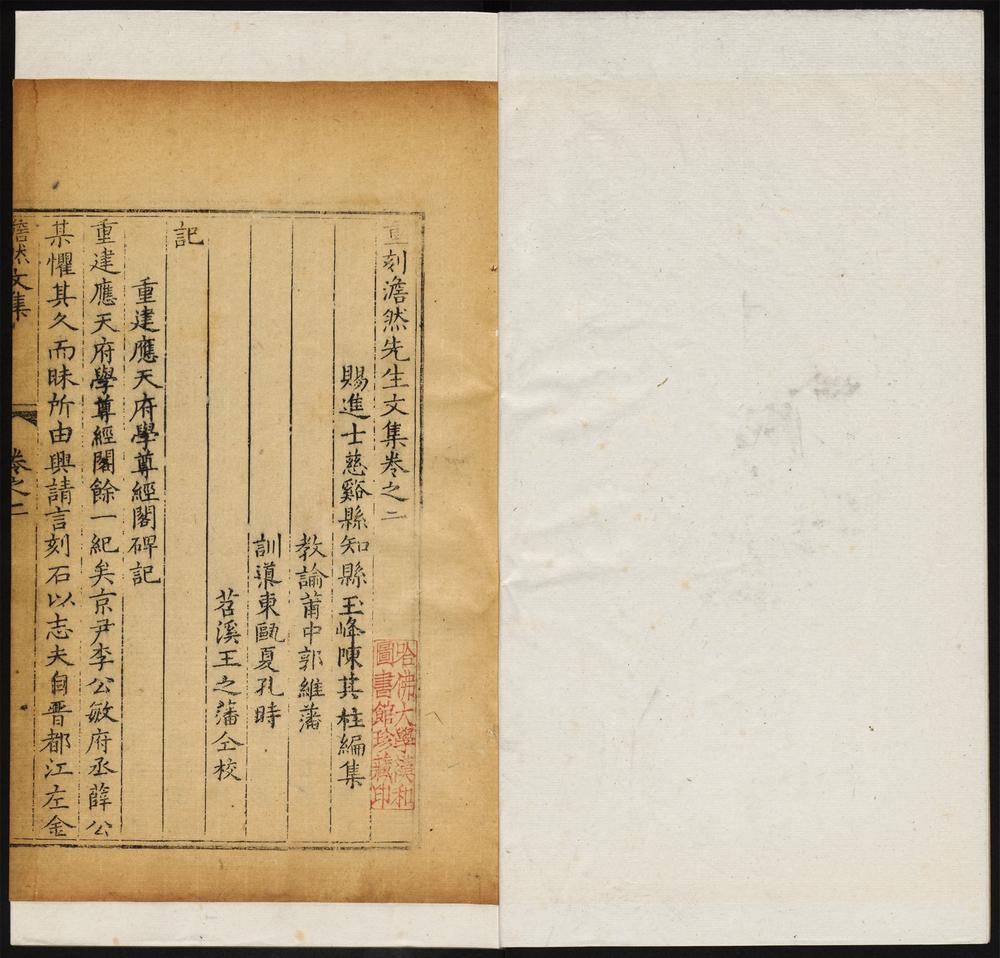 重刻澹然先生文集卷之二
賜進士慈谿縣知縣玉峰陳其柱編集
教諭莆中郭維藩
訓導東甌夏孔時
苕溪王之藩仝校
記
重建應天府學尊經閣碑記
重建應天府學尊經閣餘一紀矣京尹李公敏府丞薛公
某懼其久而昧所由興請言刻石以志夫自晋都江左金
澹然文集 卷之二
哈佛大學漢和
圖書館珍藏印